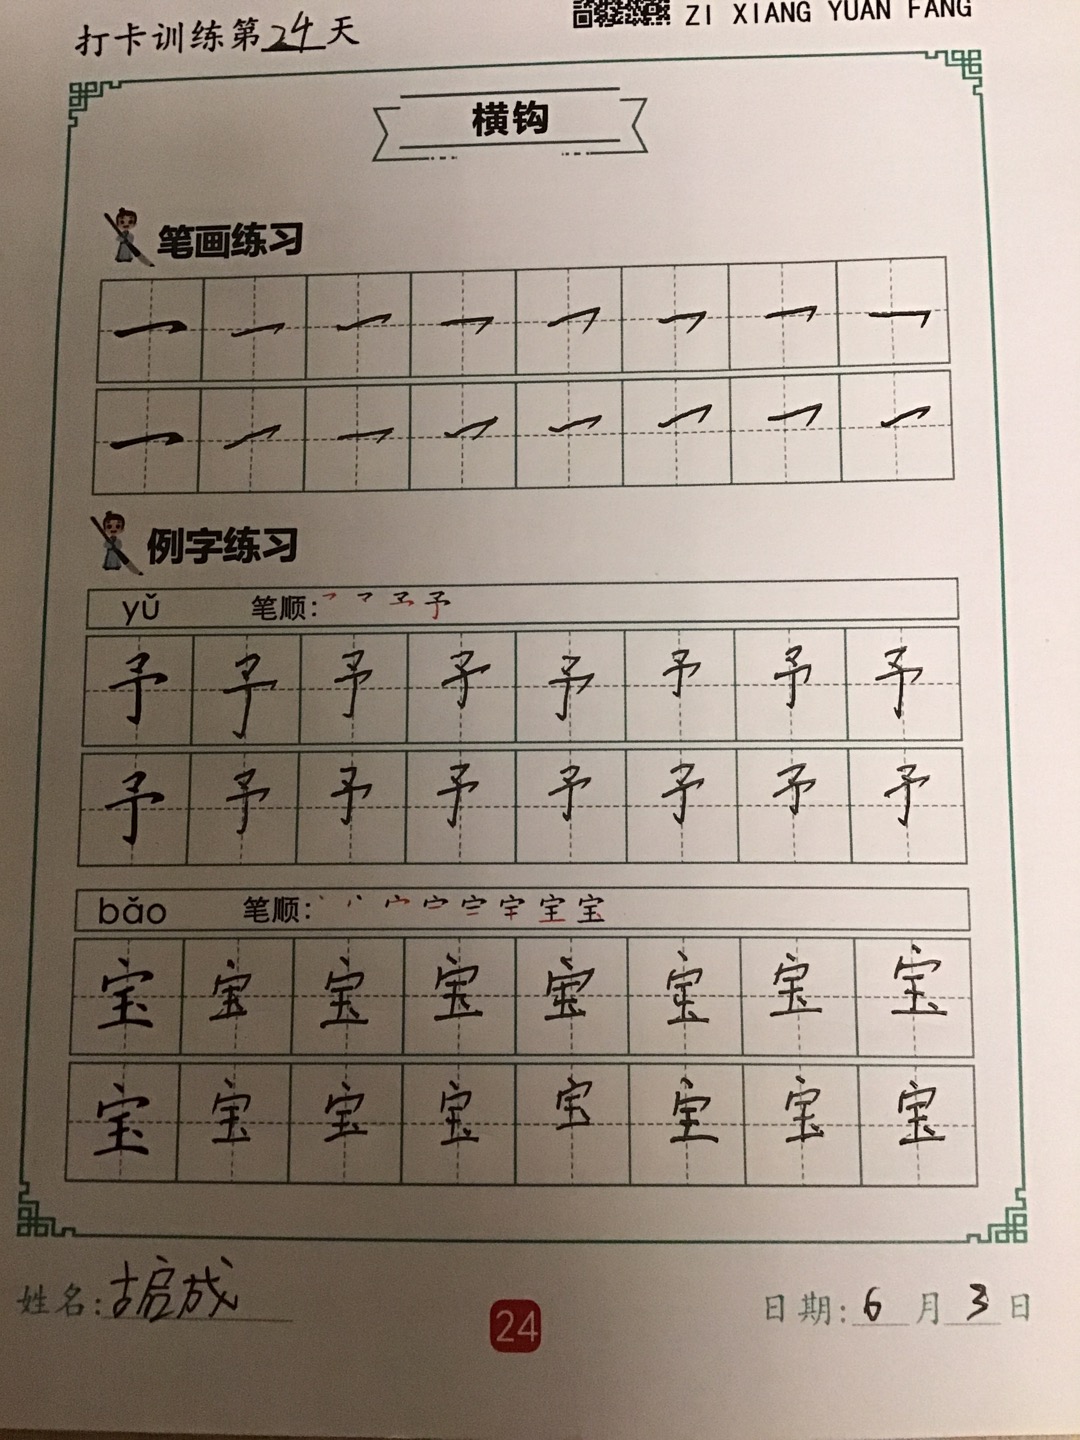 打卡训练第24天
ZI XIANG YUAN FANG
横钩
笔画练习
例字练习
yǔ 笔顺:
予 予 予 予 予 予 予 予
予 予 予 予 予 予 予 予
bǎo 笔顺:
宝 宝 宝 宝 宝 宝 宝 宝
宝 宝 宝 宝 宝 宝 宝 宝
姓名:胡启成
24
日期:6月3日